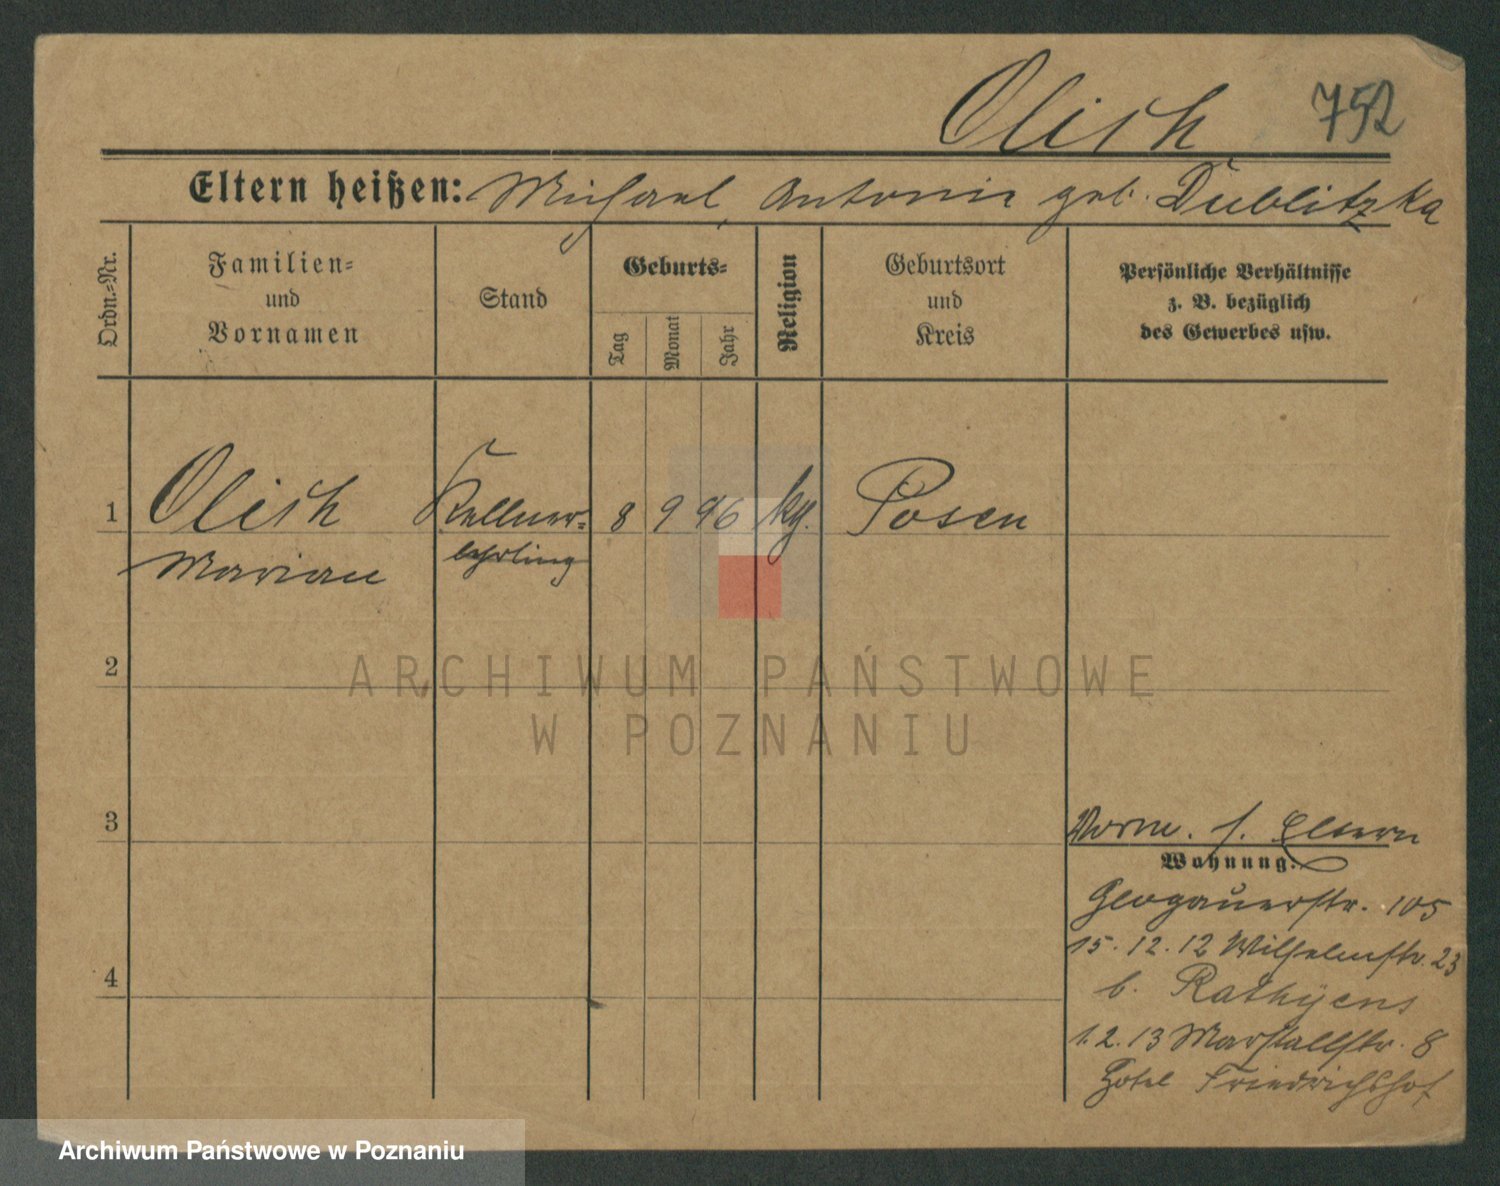 Olish 752
Eltern heißen: Michael, Antonie geb. Dublitzka
Ordn.-Nr.
Familien-
und
Vornamen
Stand
Geburts-
Tag
Monat
Jahr
Religion
Geburtsort
und
Kreis
Persönliche Verhältnisse
z. B. bezüglich
des Gewerbes usw.
1 Olish Kellner- 8 9 96 kg. Posen
Marian lehrling
2
3
s. Eltern
Wohnung:
Glogauerstr. 105
15.12.12 Wilhelmstr. 23
4
b. Rathyens
1.2.13 Marstallstr. 8
Hotel Friedrichshof
ARCHIWUM PAŃSTWOWE
W POZNANIU
Archiwum Państwowe w Poznaniu